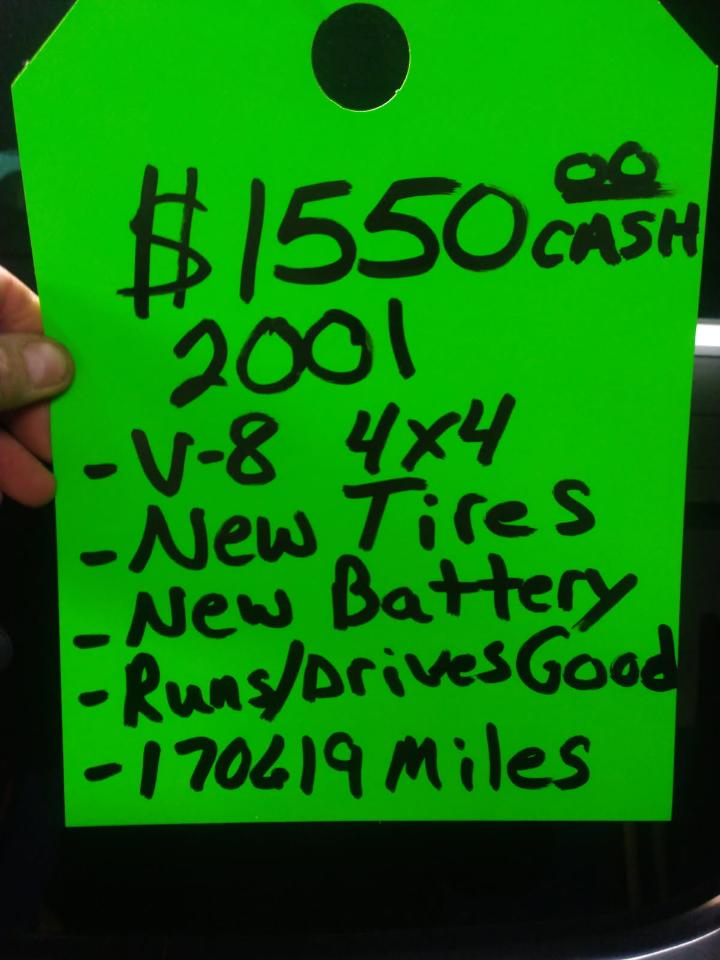 $1550 00 CASH
2001
- V-8 4x4
- New Tires
- New Battery
- Runs/Drives Good
- 170619 Miles